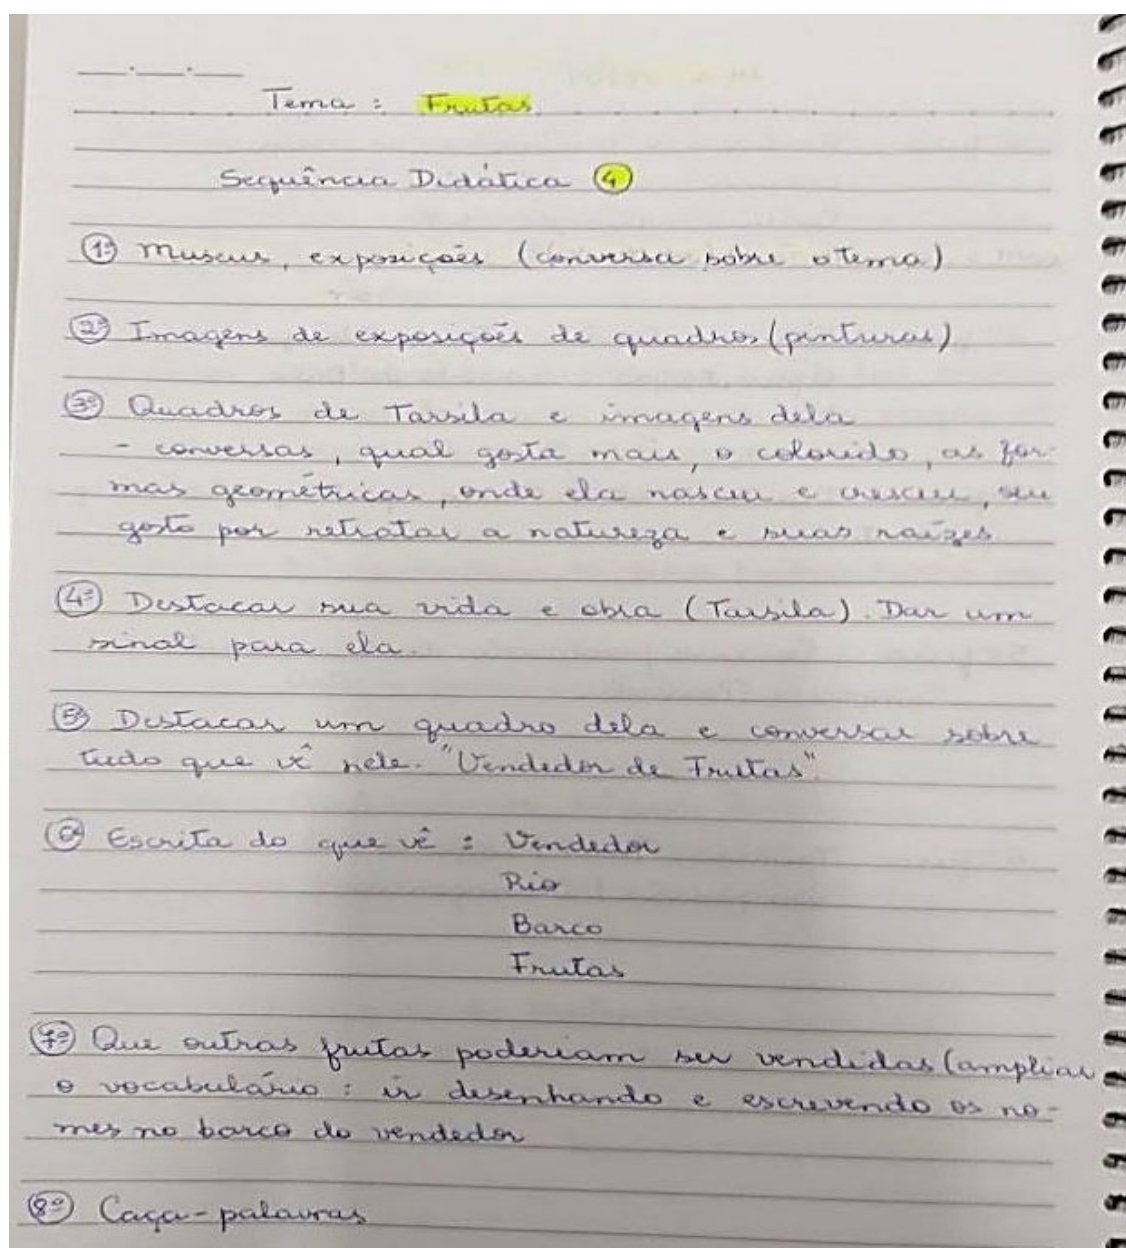 Tema : Frutas
Sequência Didática 4
1º Museus, exposições (conversa sobre o tema)
2º Imagens de exposições de quadros (pinturas)
3º Quadros de Tarsila e imagens dela
- conversas, qual gosta mais, o colorido, as for-
mas geométricas, onde ela nasceu e cresceu, seu
gosto por retratar a natureza e suas raízes
4º Destacar sua vida e obra (Tarsila). Dar um
sinal para ela.
5º Destacar um quadro dela e conversar sobre
tudo que vê nele. "Vendedor de Frutas".
6º Escrita do que vê : Vendedor
Rio
Barco
Frutas
7º Que outras frutas poderiam ser vendidas (ampliar
o vocabulário : ir desenhando e escrevendo os no-
mes no barco do vendedor
8º Caça-palavras